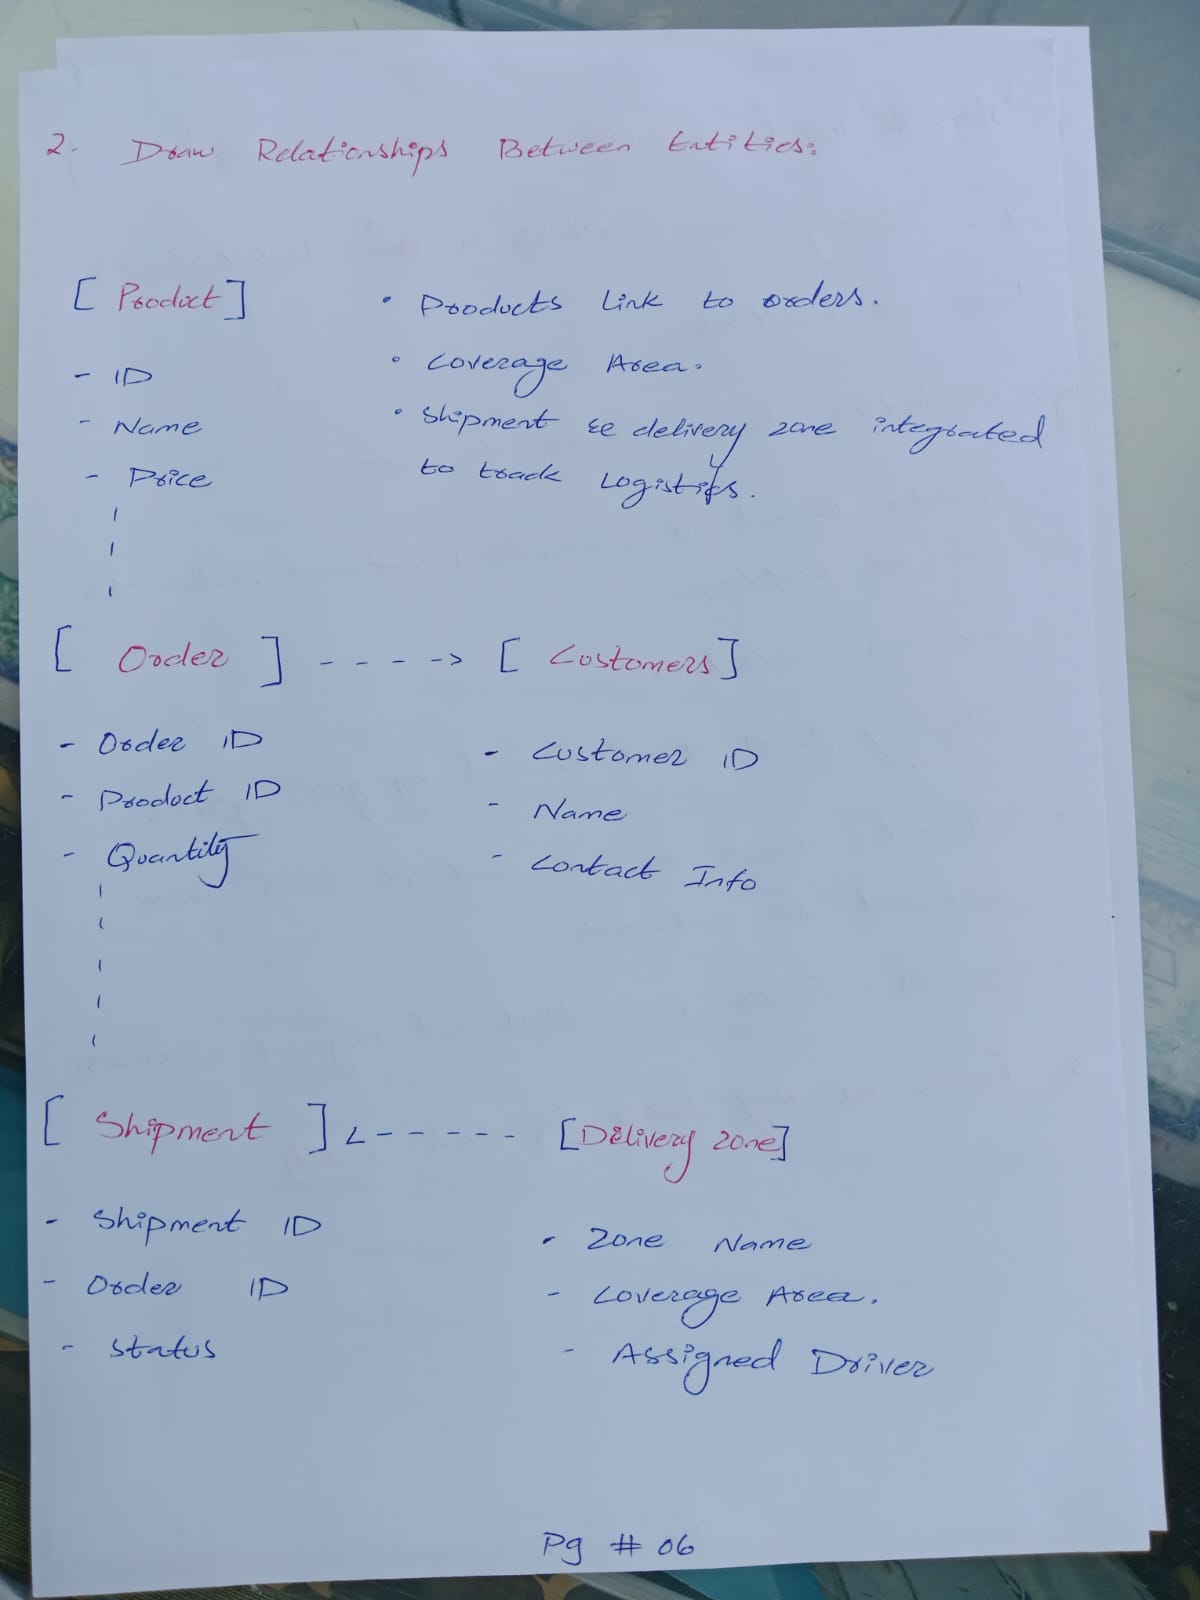 2. Draw Relationships Between Entities:
[ Product ]
- ID
- Name
- Price
• Products Link to orders.
• Coverage Area.
• Shipment & delivery zone integrated
to track Logistics.
[ Order ] ----> [ Customers ]
- Order ID
- Product ID
- Quantity
- Customer ID
- Name
- Contact Info
[ Shipment ] <----- [Delivery zone]
- Shipment ID
- Order ID
- Status
- Zone Name
- Coverage Area.
- Assigned Driver
Pg # 06